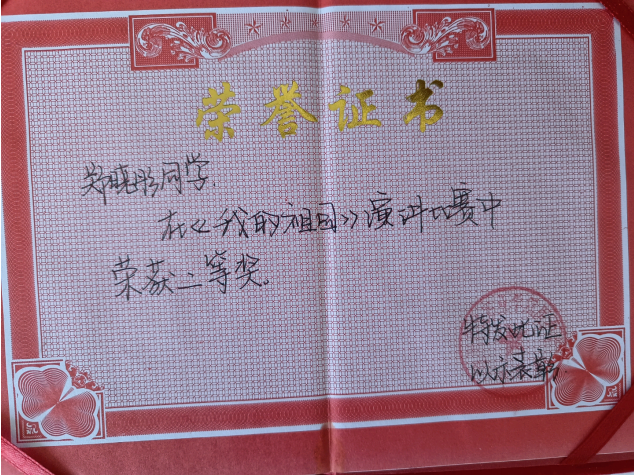 荣誉证书
郑晓彤同学.
在《我的祖国》演讲比赛中
荣获二等奖.
特发此证
以示表彰